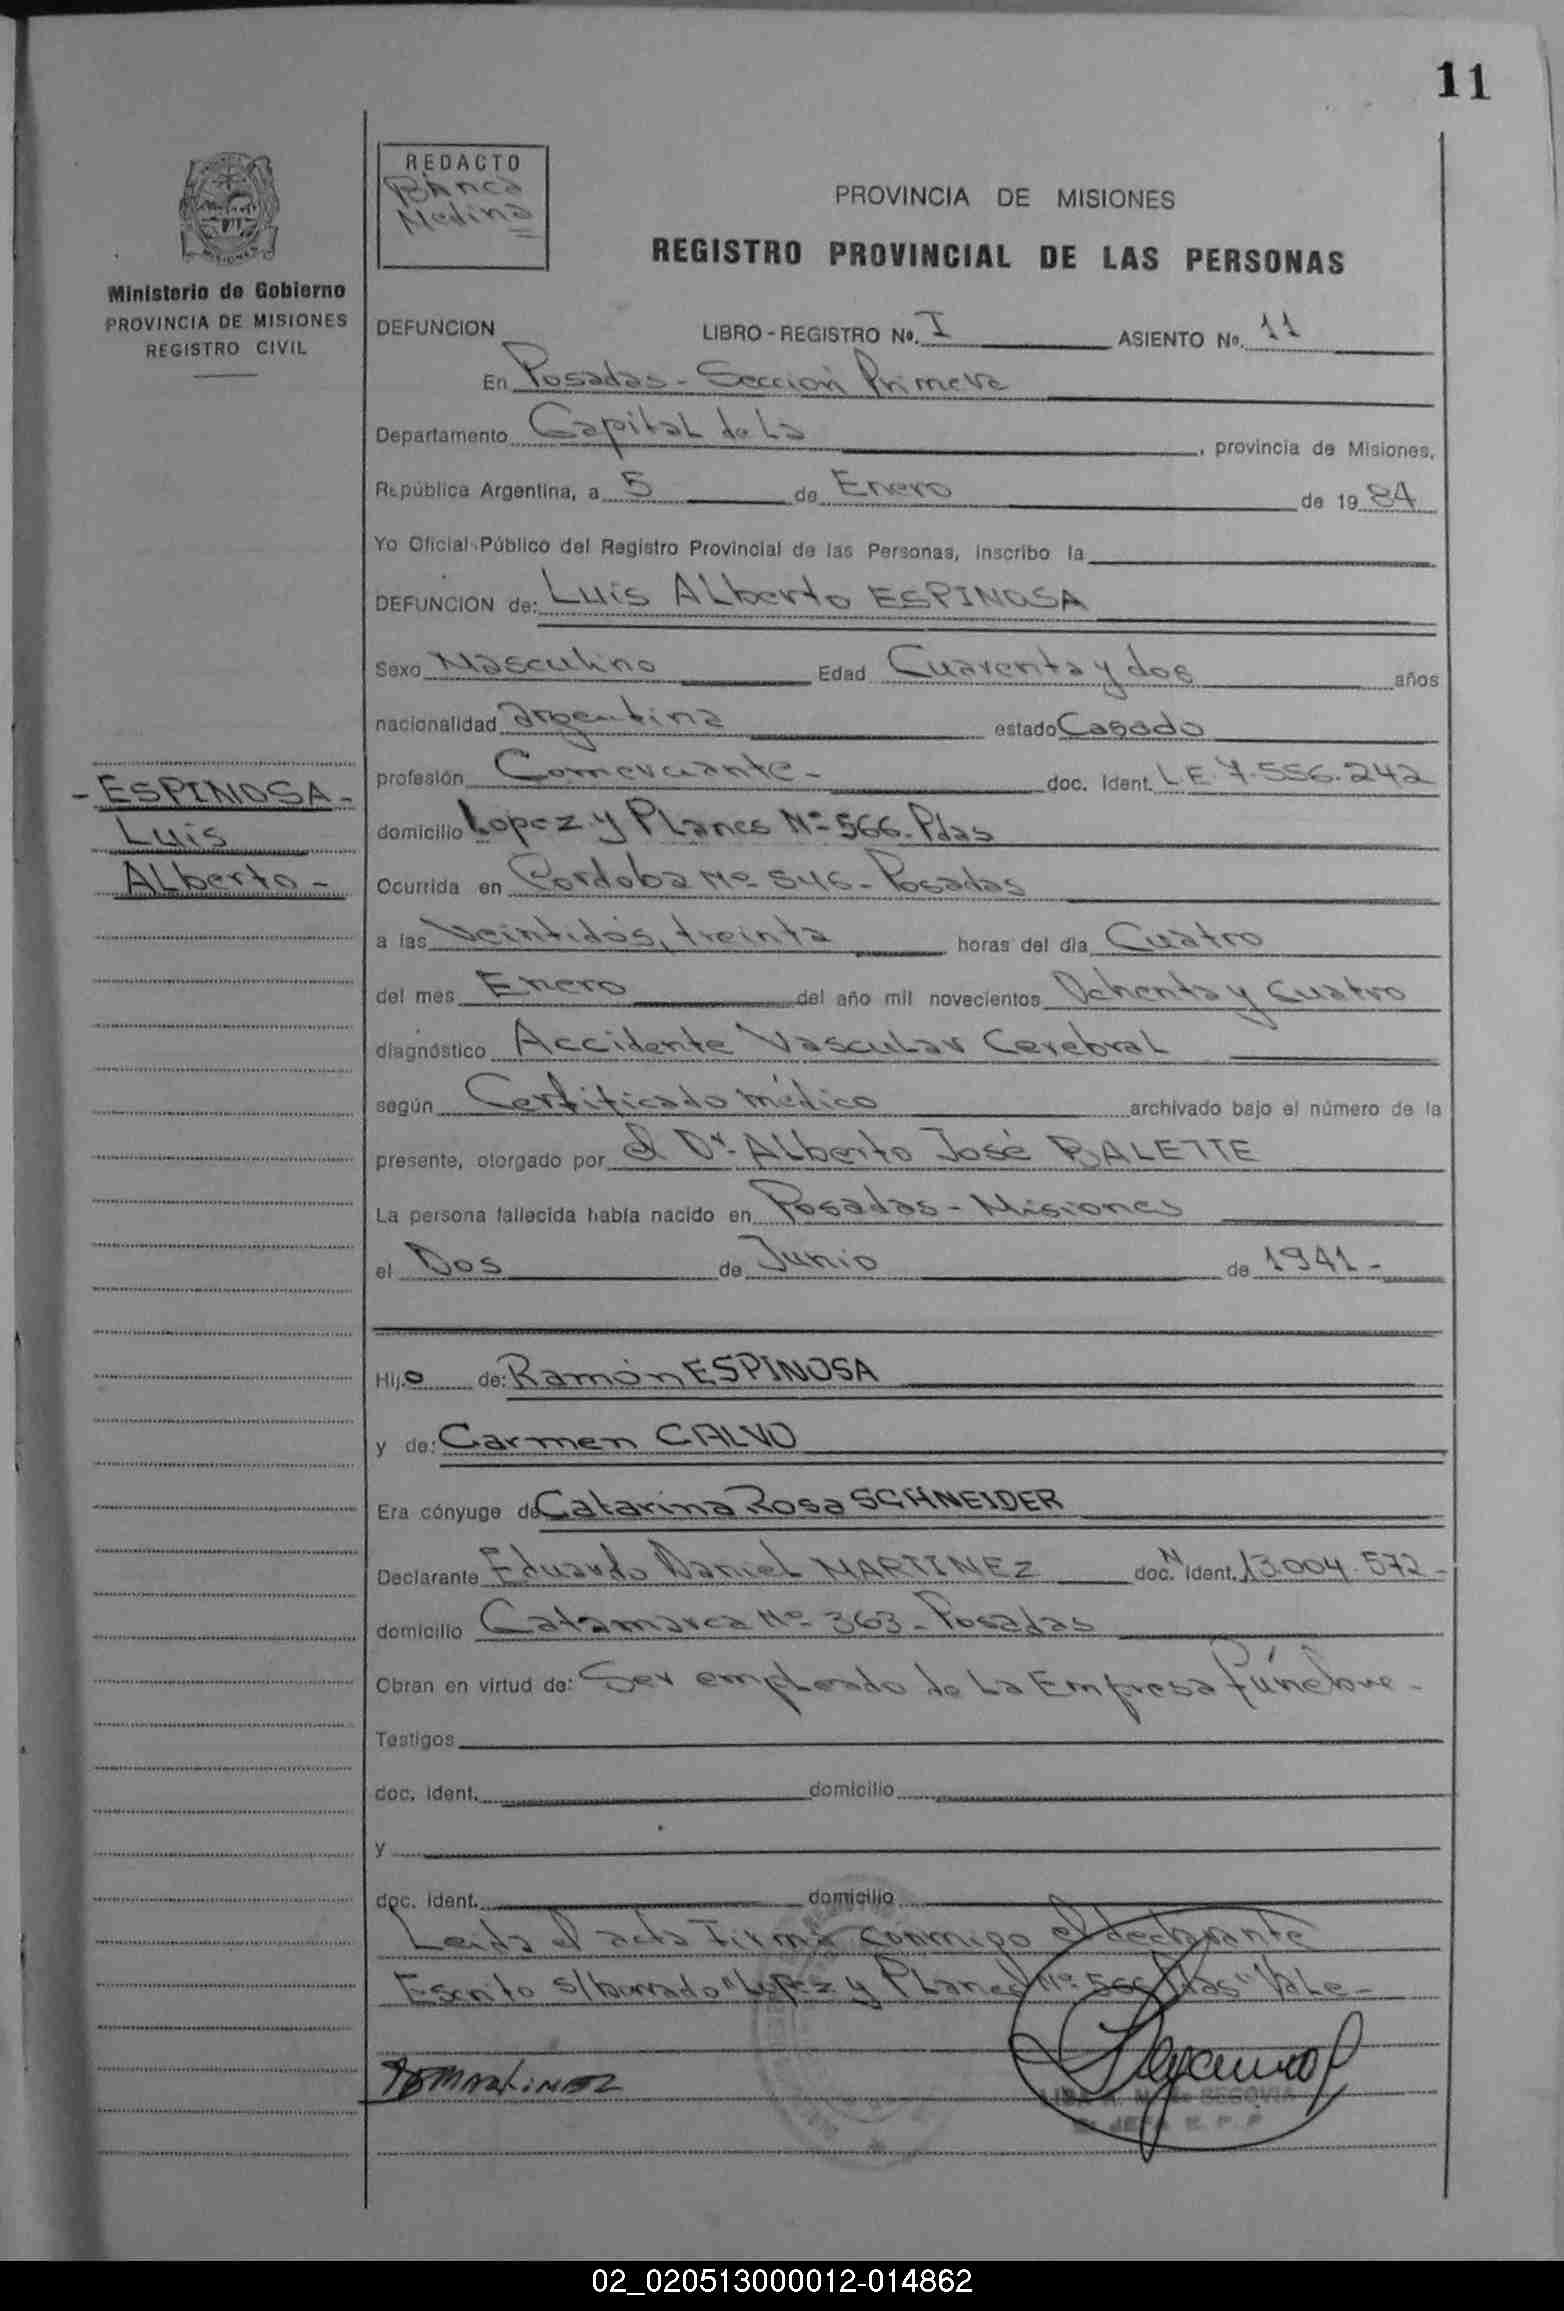 11
REDACTO
Blanca
Medina
PROVINCIA DE MISIONES
REGISTRO PROVINCIAL DE LAS PERSONAS
MISIONES
Ministerio de Gobierno
PROVINCIA DE MISIONES
REGISTRO CIVIL
DEFUNCION LIBRO - REGISTRO Nº. I ASIENTO Nº. 11
En Posadas - Sección Primera
Departamento Capital de La , provincia de Misiones,
República Argentina, a 5 de Enero de 19 84
Yo Oficial Público del Registro Provincial de las Personas, inscribo la
DEFUNCION de: Luis ALberto ESPINOSA
Sexo Masculino Edad Cuarenta y dos años
nacionalidad argentina estado Casado
profesión Comerciante - doc. Ident. L.E. 7.556.242
- ESPINOSA -
Luis
ALberto -
domicilio Lopez y PLanes Nº 566. Pdas
Ocurrida en Cordoba Nº 545 - Posadas
a las Veintidós, treinta horas del día Cuatro
del mes Enero del año mil novecientos Ochenta y Cuatro
diagnóstico Accidente VascuLar CerebraL
según Certificado médico archivado bajo el número de la
presente, otorgado por el Dr. ALberto José BALETTE
La persona fallecida había nacido en Posadas - Misiones
el Dos de Junio de 1941 -
Hijo de: Ramón ESPINOSA
y de: Carmen CALVO
Era cónyuge de Catarina Rosa SCHNEIDER
Declarante Eduardo DanieL MARTINEZ doc. N Ident. 13.004.572 -
domicilio Catamarca Nº 363 - Posadas
Obran en virtud de: Ser empLeado de La Empresa Fúnebre -
Testigos
doc. Ident. domicilio
y
doc. Ident. domicilio
Leida el acta Firma conmigo el declarante
Escrito s/borrado "Lopez y PLanes Nº 566 Pdas" VaLe -
Martinez
SEGOVIA
02_020513000012-014862